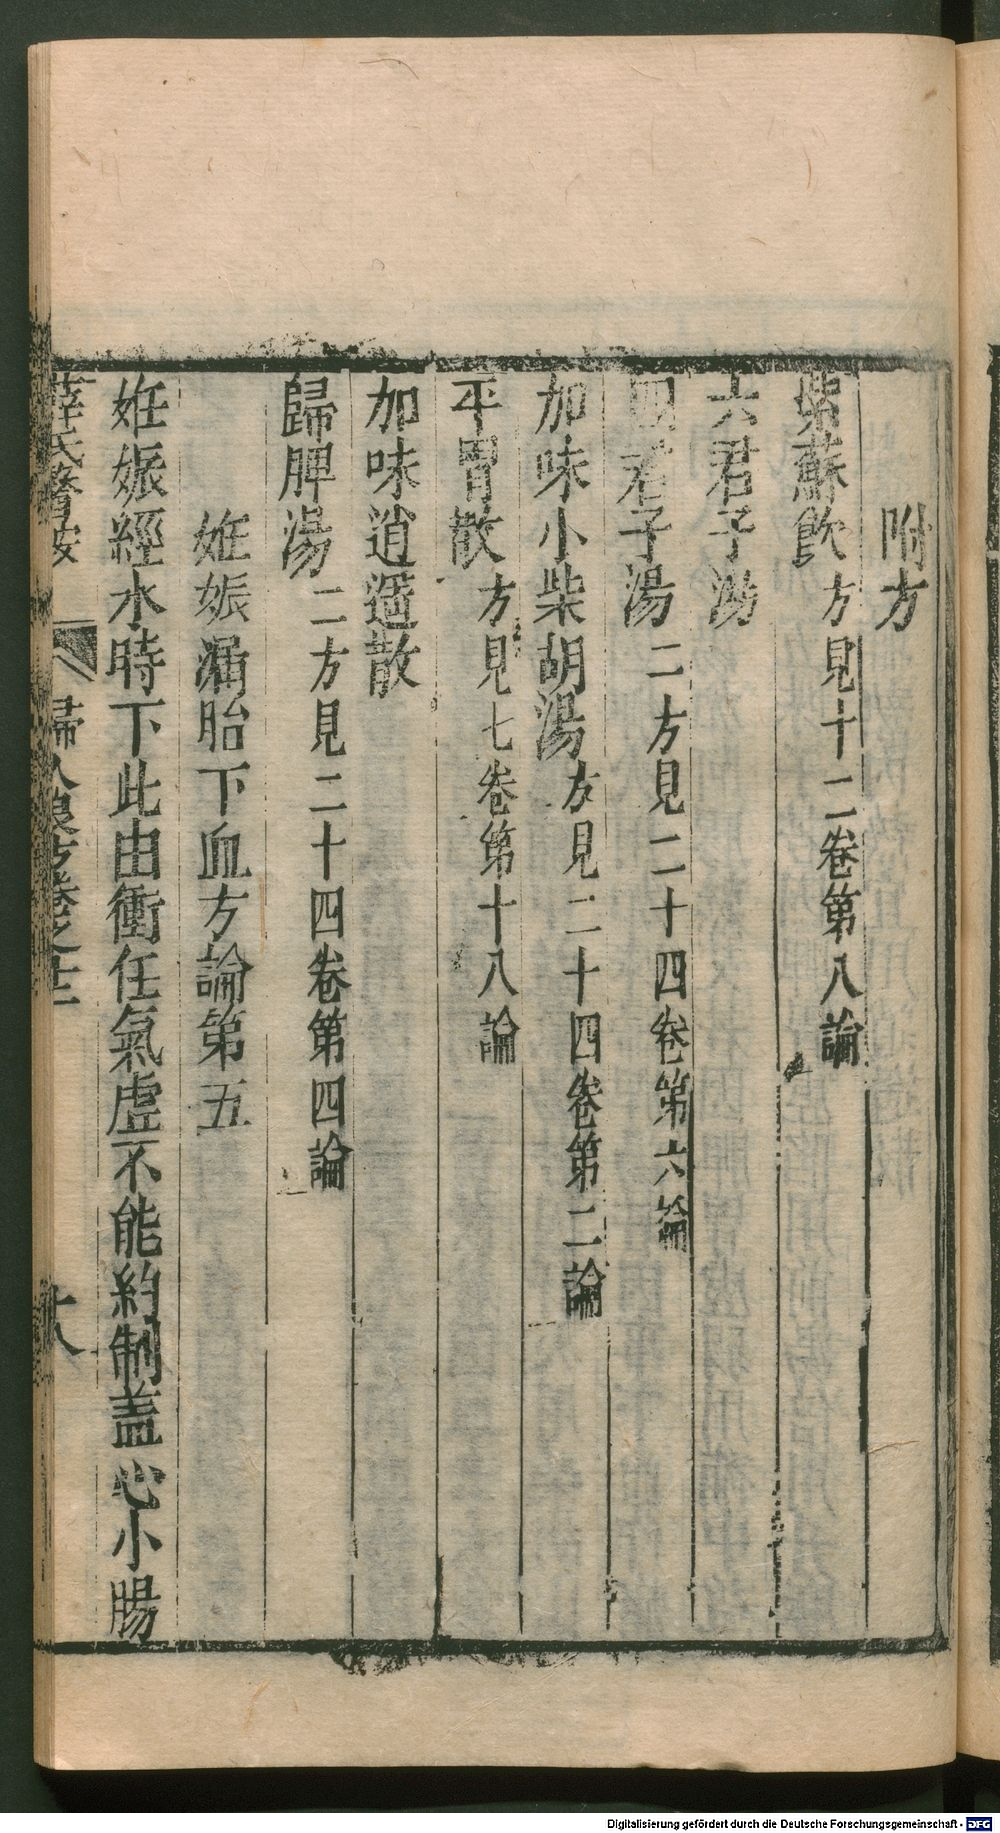 附方
紫蘇飲方見十二卷第八論
六君子湯
四君子湯二方見二十四卷第六論
加味小柴胡湯方見二十四卷第二論
平胃散方見七卷第十八論
加味逍遥散
歸脾湯二方見二十四卷第四論
妊娠漏胎下血方論第五
妊娠經水時下此由衝任氣虛不能約制盖心小腸
薛氏醫按 婦人良方卷之十二 十八
Digitalisierung gefördert durch die Deutsche Forschungsgemeinschaft - DFG